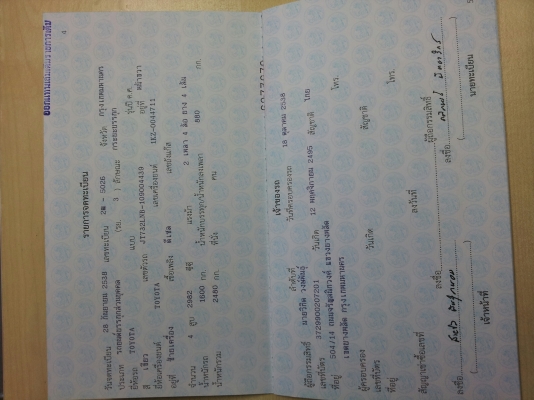 ออกแทนฉบับเดิมรายการเดิม
4
รายการจดทะเบียน
วันจดทะเบียน 28 กันยายน 2538 เลขทะเบียน 2ต - 5026 จังหวัด กรุงเทพมหานคร
ประเภท รถยนต์บรรทุกส่วนบุคคล (รย. 3 ) ลักษณะ กระบะบรรทุก
ยี่ห้อรถ TOYOTA แบบ รุ่นปี ค.ศ.
สี เขียว เลขตัวรถ อยู่ที่ หน้าขวา
ยี่ห้อเครื่องยนต์ TOYOTA เลขเครื่องยนต์ 1KZ-0044711
อยู่ที่ ซ้ายเครื่อง เชื้อเพลิง ดีเซล เลขถังแก๊ส
จำนวน 4 สูบ 2982 ซีซี แรงม้า 2 เพลา 4 ล้อ ยาง 4 เส้น
น้ำหนักรถ 1600 กก. น้ำหนักบรรทุก/น้ำหนักลงเพลา 880 กก.
น้ำหนักรวม 2480 กก. ที่นั่ง คน
เจ้าของรถ
ลำดับที่ วันที่ครอบครองรถ 18 ตุลาคม 2538
ผู้ถือกรรมสิทธิ์
เลขที่บัตร 3729900207201 วันเกิด 12 พฤศจิกายน 2495 สัญชาติ ไทย
ที่อยู่ 504/14 ถนนจรัญสนิทวงศ์ แขวงบางพลัด โทร.
เขตบางพลัด กรุงเทพมหานคร
ผู้ครอบครอง
เลขที่บัตร วันเกิด สัญชาติ
ที่อยู่ โทร.
สัญญาเช่าซื้อเลขที่ ลงวันที่
ลงชื่อ ผู้ถือกรรมสิทธิ์
ลงชื่อ ลงชื่อ
เจ้าหน้าที่ นายทะเบียน
5